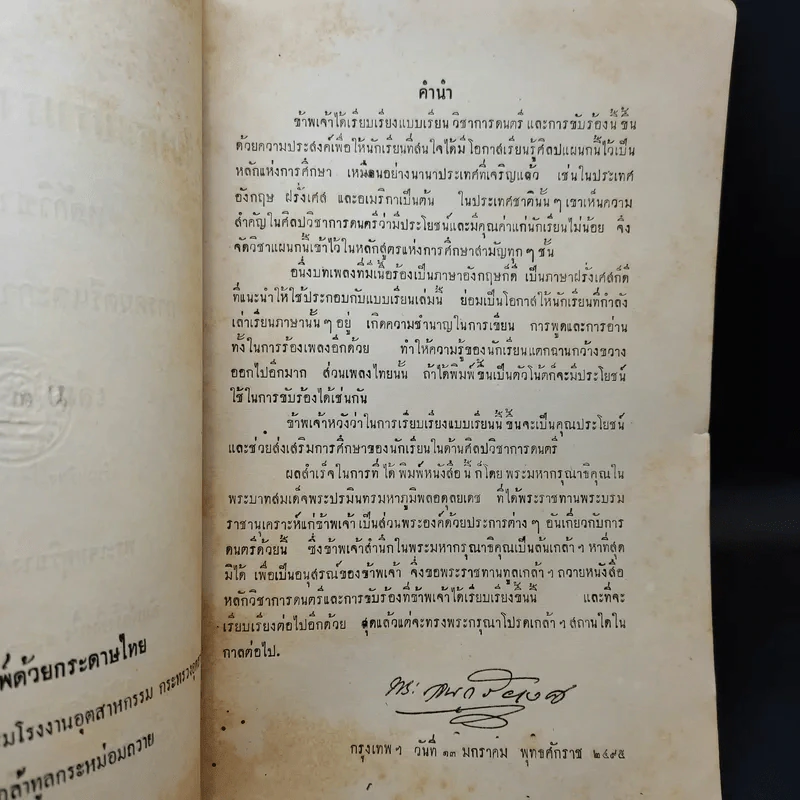 คำนำ
ข้าพเจ้าได้เรียบเรียงแบบเรียน วิชาการดนตรี และการขับร้องนี้ ขึ้น
ด้วยความประสงค์เพื่อให้นักเรียนที่สนใจได้มีโอกาสเรียนรู้ศิลปแผนกนี้ไว้เป็น
หลักแห่งการศึกษา เหมือนอย่างนานาประเทศที่เจริญแล้ว เช่นในประเทศ
อังกฤษ ฝรั่งเศส และอเมริกาเป็นต้น ในประเทศชาตินั้น ๆ เขาเห็นความ
สำคัญในศิลปวิชาการดนตรีว่ามีประโยชน์และมีคุณค่าแก่นักเรียนไม่น้อย จึง
จัดวิชาแผนกนี้เข้าไว้ในหลักสูตรแห่งการศึกษาสามัญทุก ๆ ชั้น
อนึ่งบทเพลงที่มีเนื้อร้องเป็นภาษาอังกฤษก็ดี เป็นภาษาฝรั่งเศสก็ดี
ที่แนะนำให้ใช้ประกอบกับแบบเรียนเล่มนี้ ย่อมเป็นโอกาสให้นักเรียนที่กำลัง
เล่าเรียนภาษานั้น ๆ อยู่ เกิดความชำนาญในการเขียน การพูดและการอ่าน
ทั้งในการร้องเพลงอีกด้วย ทำให้ความรู้ของนักเรียนแตกฉานกว้างขวาง
ออกไปอีกมาก ส่วนเพลงไทยนั้น ถ้าได้พิมพ์ขึ้นเป็นตัวโน้ตก็จะมีประโยชน์
ใช้ในการขับร้องได้เช่นกัน
ข้าพเจ้าหวังว่าในการเรียบเรียงแบบเรียนนี้ ขึ้นจะเป็นคุณประโยชน์
และช่วยส่งเสริมการศึกษาของนักเรียนในด้านศิลปวิชาการดนตรี
ผลสำเร็จในการที่ ได้ พิมพ์หนังสือ นี้ ก็โดย พระมหากรุณาธิคุณใน
พระบาทสมเด็จพระปรมินทรมหาภูมิพลอดุลยเดช ที่ได้พระราชทานพระบรม
ราชานุเคราะห์แก่ข้าพเจ้า เป็นส่วนพระองค์ด้วยประการต่าง ๆ อันเกี่ยวกับการ
ดนตรีด้วยนี้ ซึ่งข้าพเจ้าสำนึกในพระมหากรุณาธิคุณเป็นล้นเกล้า ฯ หาที่สุด
มิได้ เพื่อเป็นอนุสรณ์ของข้าพเจ้า จึ่งขอพระราชทานทูลเกล้า ฯ ถวายหนังสือ
หลักวิชาการดนตรีและการขับร้องที่ข้าพเจ้าได้เรียบเรียงขึ้นนี้ และที่จะ
เรียบเรียงต่อไปอีกด้วย สุดแล้วแต่จะทรงพระกรุณาโปรดเกล้า ฯ สถานใดใน
กาลต่อไป.
กรุงเทพ ฯ วันที่ ๑๓ มกราคม พุทธศักราช ๒๔๙๕
พ์ด้วยกระดาษไทย
มโรงงานอุตสาหกรรม กระทรวงอุต
กล้าทูลกระหม่อมถวาย